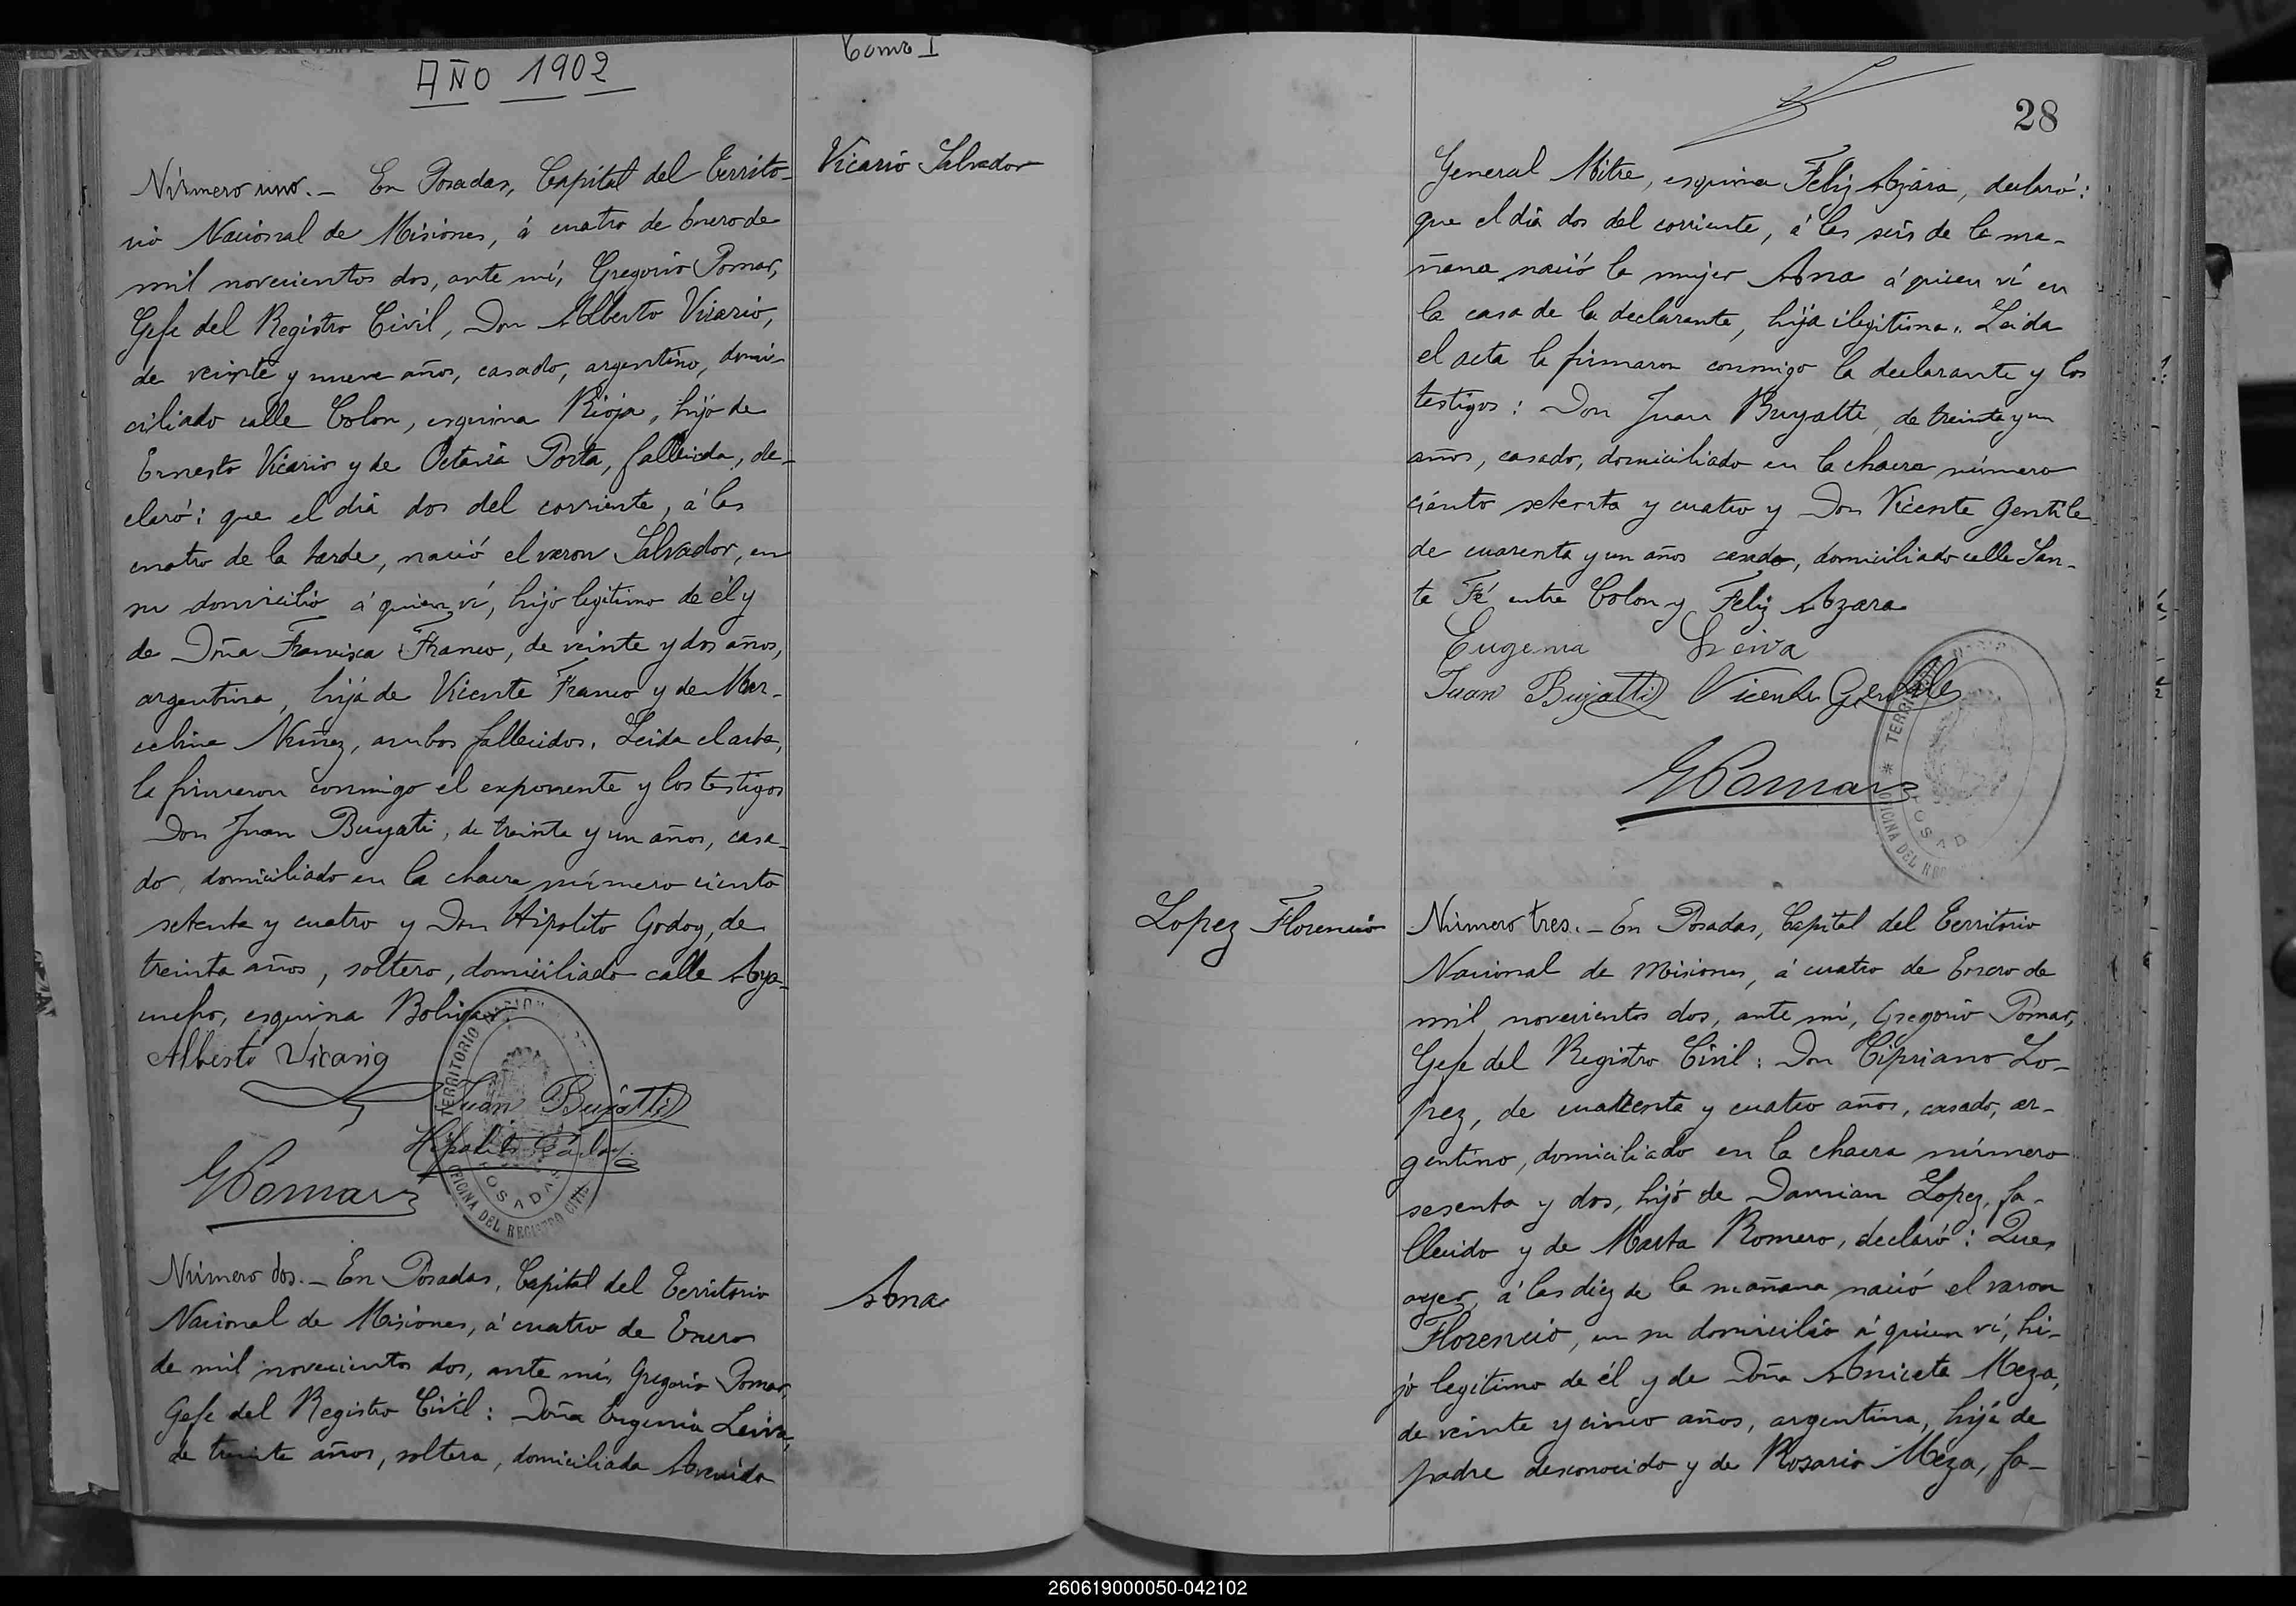 AÑO 1902
Tomo I
Vicario Salvador
Número uno. — En Posadas, Capital del Territo-
rio Nacional de Misiones, á cuatro de Enero de
mil novecientos dos, ante mí, Gregorio Pomar,
Gefe del Registro Civil, Don Alberto Vicario,
de veinte y nueve años, casado, argentino, domi-
ciliado calle Colon, esquina Rioja, hijo de
Ernesto Vicario y de Octavia Porta, fallecida, de-
claró: que el día dos del corriente, á las
cuatro de la tarde, nació el varon Salvador, en
su domicilio á quien ví, hijo legitimo de él y
de Doña Francisca Franco, de veinte y dos años,
argentina, hija de Vicente Franco y de Mar-
celina Nuñez, ambos fallecidos. Leida el acta,
la firmaron conmigo el exponente y los testigos
Don Juan Buyati, de treinta y un años, casa-
do, domiciliado en la chacra número ciento
setenta y cuatro y Don Hipolito Godoy, de
treinta años, soltero, domiciliado calle Aya-
cucho, esquina Bolivar
Alberto Vicario
Juan Bujatti
Hipolito
GPomar
TERRITORIO NACIONAL DE
POSADAS
OFICINA DEL REGISTRO CIVIL
Número dos. — En Posadas, Capital del Territorio
Nacional de Misiones, á cuatro de Enero
de mil novecientos dos, ante mí, Gregorio Pomar,
Gefe del Registro Civil: Doña Eugenia Leiva,
de treinta años, soltera, domiciliada Avenida
Ana
28
General Mitre, esquina Feliz Azára, declaró:
que el día dos del corriente, á las seis de la ma-
ñana nació la mujer Ana á quien ví en
la casa de la declarante, hija ilegitima. Leida
el acta la firmaron conmigo la declarante y los
testigos: Don Juan Buyatti, de treinta y un
años, casado, domiciliado en la chacra número
ciento setenta y cuatro y Don Vicente Gentile
de cuarenta y un años casado, domiciliado calle San-
ta Fé entre Colon y Feliz Azara
Eugenia Leiva
Juan Bujatti Vicente Gentile
GPomar
TERRI
POSAD
OFICINA DEL REG
Lopez Florencio
Número tres. — En Posadas, Capital del Territorio
Nacional de Misiones, á cuatro de Enero de
mil novecientos dos, ante mí, Gregorio Pomar,
Gefe del Registro Civil: Don Cipriano Lo-
pez, de cuarenta y cuatro años, casado, ar-
gentino, domiciliado en la chacra número
sesenta y dos, hijo de Damian Lopez, fa-
llecido y de Marta Romero, declaró: Que
ayer, á las diez de la mañana nació el varon
Florencio, en su domicilio á quien ví, hi-
jo legitimo de él y de Doña Aniceta Meza,
de veinte y cinco años, argentina, hija de
padre desconocido y de Rosario Meza, fa-
260619000050-042102